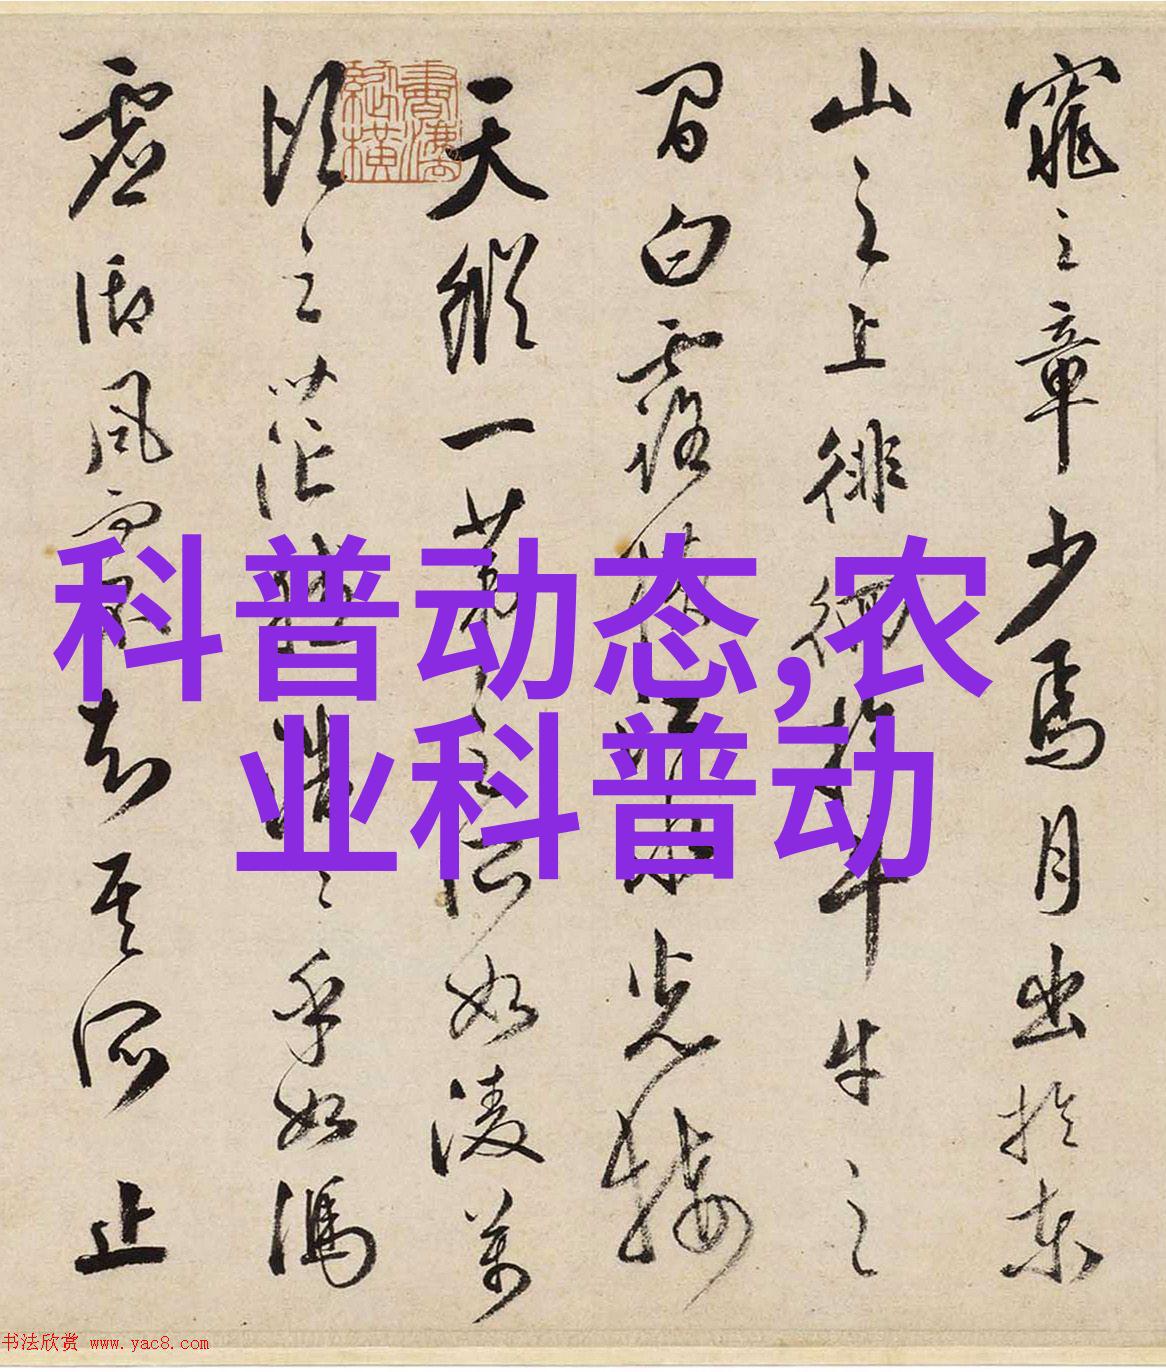 科普动态,农
业科普动
窕之章少焉月出於東
山之上徘徊於斗牛之
間白露橫江水光接
天縱一葦之所如凌萬
頃之茫然浩〻乎如馮
虛御風而不知其所止
书法欣赏 www.yac8.com